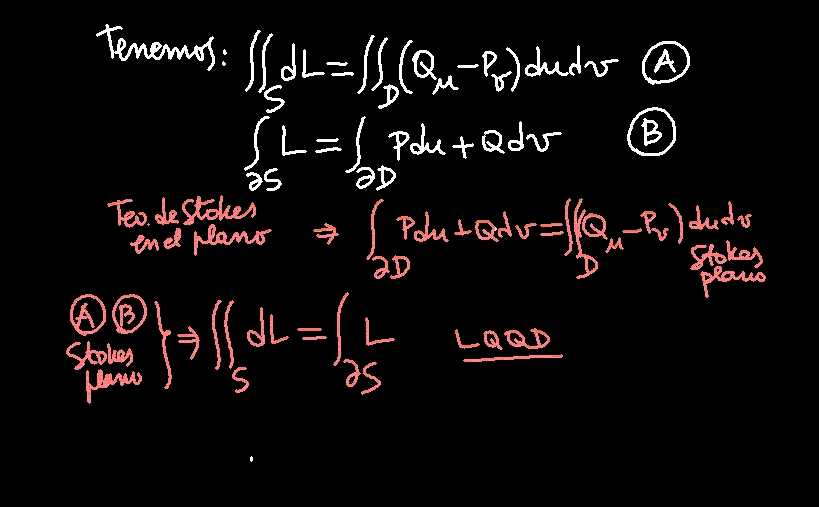 Tenemos: ∬_S dL = ∬_D (Q_u − P_v) du dv Ⓐ
∫_∂S L = ∫_∂D Pdu + Qdv Ⓑ
Teo. de Stokes
en el plano ⇒ ∫_∂D Pdu + Qdv = ∬_D (Q_u − P_v) du dv
Stokes
plano
Ⓐ Ⓑ
Stokes
plano } ⇒ ∬_S dL = ∫_∂S L LQQD